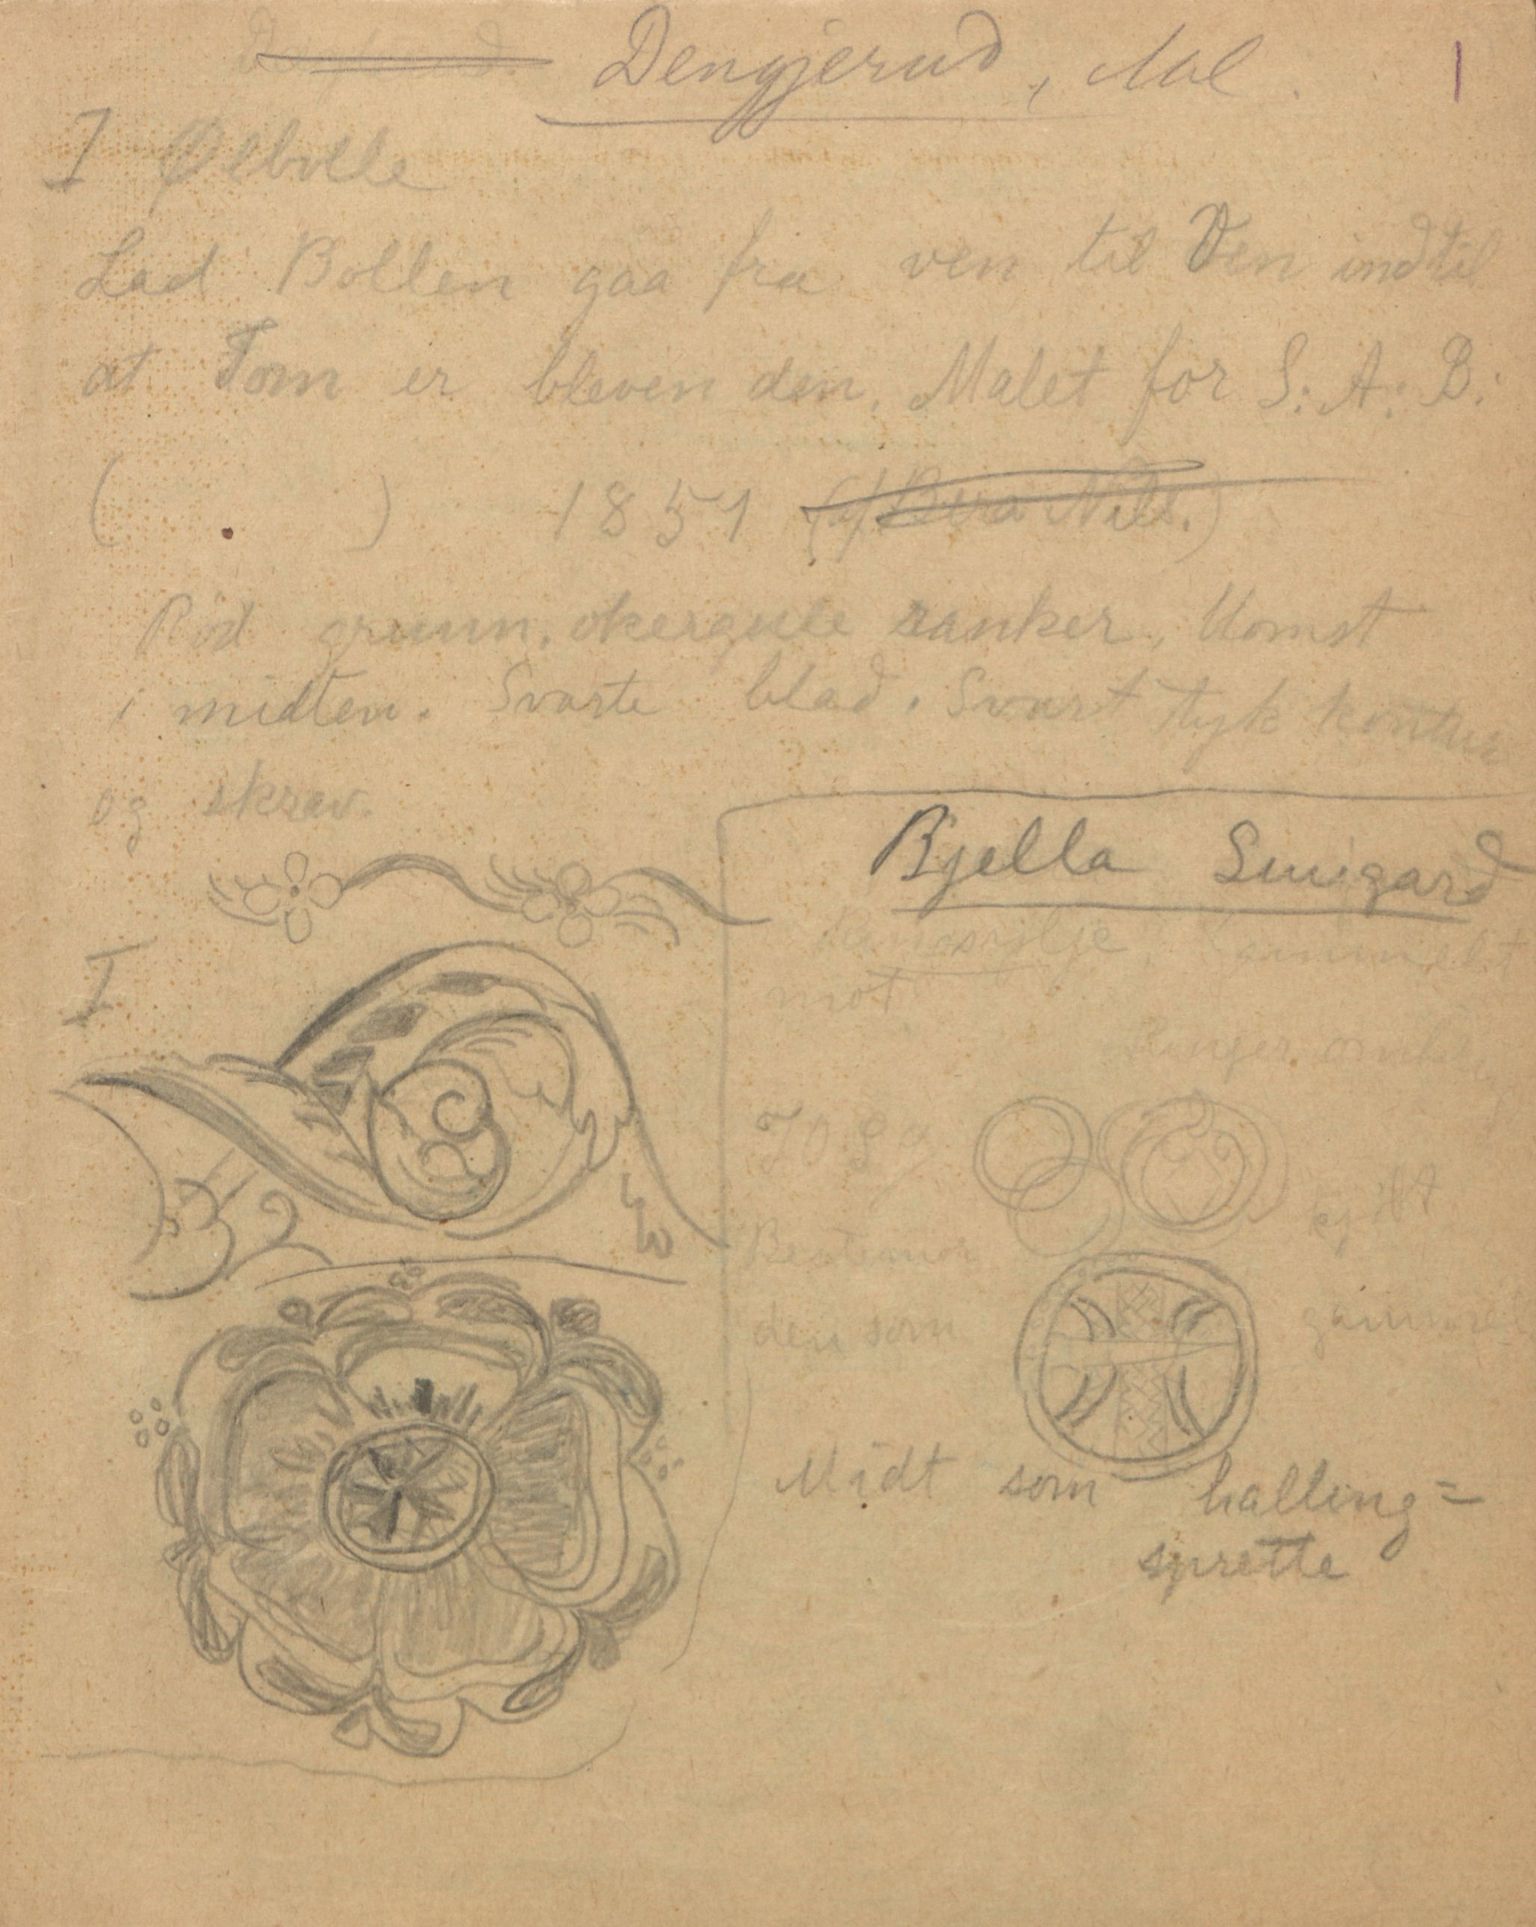 Dengjerud, Aal.
I Ølbolle
Lad Bollen gaa fra ven til Ven indtil
at Tom er bleven den. Malet for S: A: B:
( ) 1851 (af Nils.)
Rød grunn, okergule ranker, blomst
i midten. Svarte blad. Svart tyk kontur
og skrav.
I
Bjella Suigard
Hanosylje. Gammelt
mot
Ringer omkr
Bestemor
den som gammel
Midt som halling=
sprette